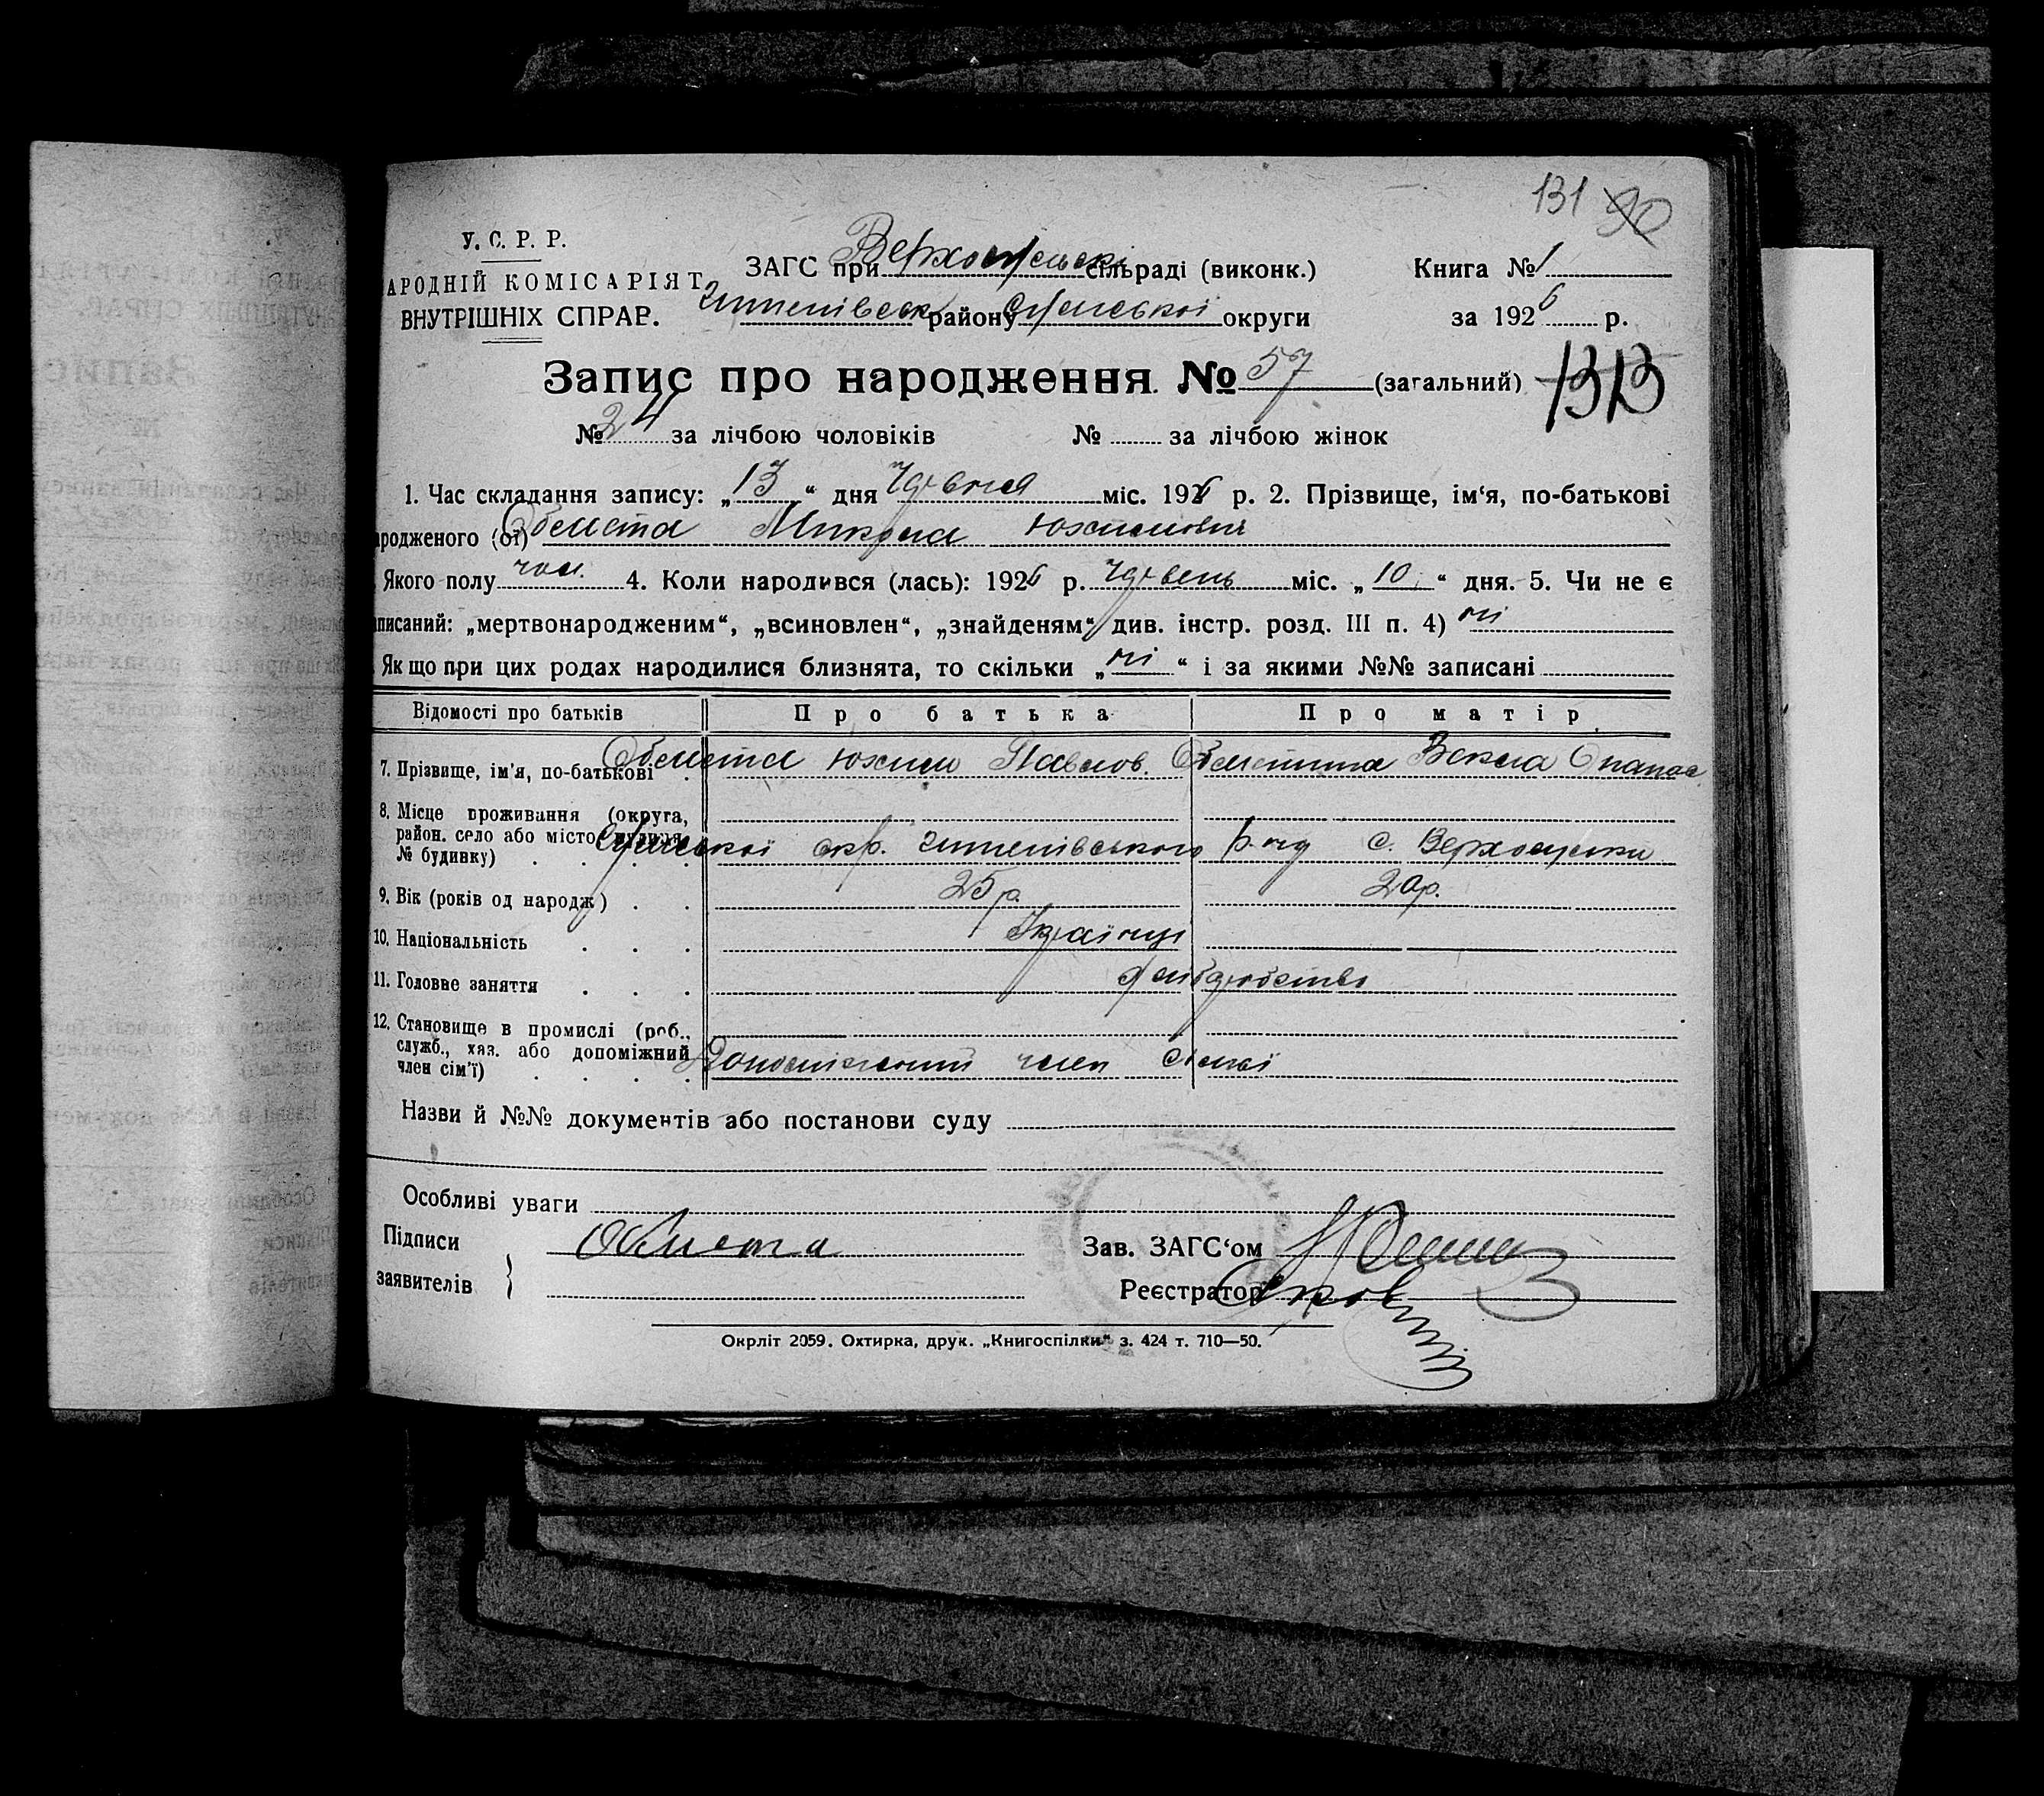 131 90
У. С. Р. Р.
АРОДНІЙ КОМІСАРІЯТ
ВНУТРІШНІХ СПРАР.
ЗАГС при Верхосульскі сільраді (виконк.)
Книга № 1
Штепівськ району Сумської округи
за 1926 р.
Запис про народження. № 57 (загальний)
1313
№ 24 за лічбою чоловіків № за лічбою жінок
1. Час складання запису: „13“ дня Червня міс. 1926 р. 2. Прізвище, ім‘я, по-батькові
ародженого (ої) Обмета Микола Юхимович
Якого полу чол. 4. Коли народився (лась): 1926 р. червень міс. „10“ дня. 5. Чи не є
аписаний: „мертвонародженим“, „всиновлен“, „знайденям“ див. інстр. розд. III п. 4) ні
Якщо при цих родах народилися близнята, то скільки „ні“ і за якими №№ записані
Відомості про батьків Про батька Про матір
7. Прізвище, ім'я, по-батькові Обмета Юхим Павлов. Векла Опанас
8. Місце проживання (округа,
район. село або місто, вулиця,
№ будинку) Сумської окр. Штепівського р-ну с. Верхосулки
9. Вік (років од народж) 25 р. 20 р.
10. Національність Українці
11. Головне заняття хліборобство
12. Становище в промислі (роб.,
служб., хяз. або допоміжний
член сім'ї) Допоміжний член сімьї
Назви й №№ документів або постанови суду
Особливі уваги
Підписи
заявителів } Обмета
Зав. ЗАГС‘ом
Реєстратор
Окрліт 2059. Охтирка, друк. „Книгоспілки“ з. 424 т. 710—50.